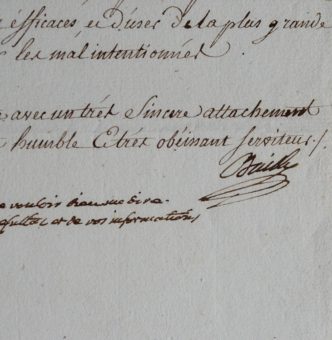 éfficaces et d'user de la plus grande
les mal intentionnés
avec un trés Sincere attachement
humble Et trés obéissant serviteur./.
Bailly
vouloir bien me dire
et de vos informations